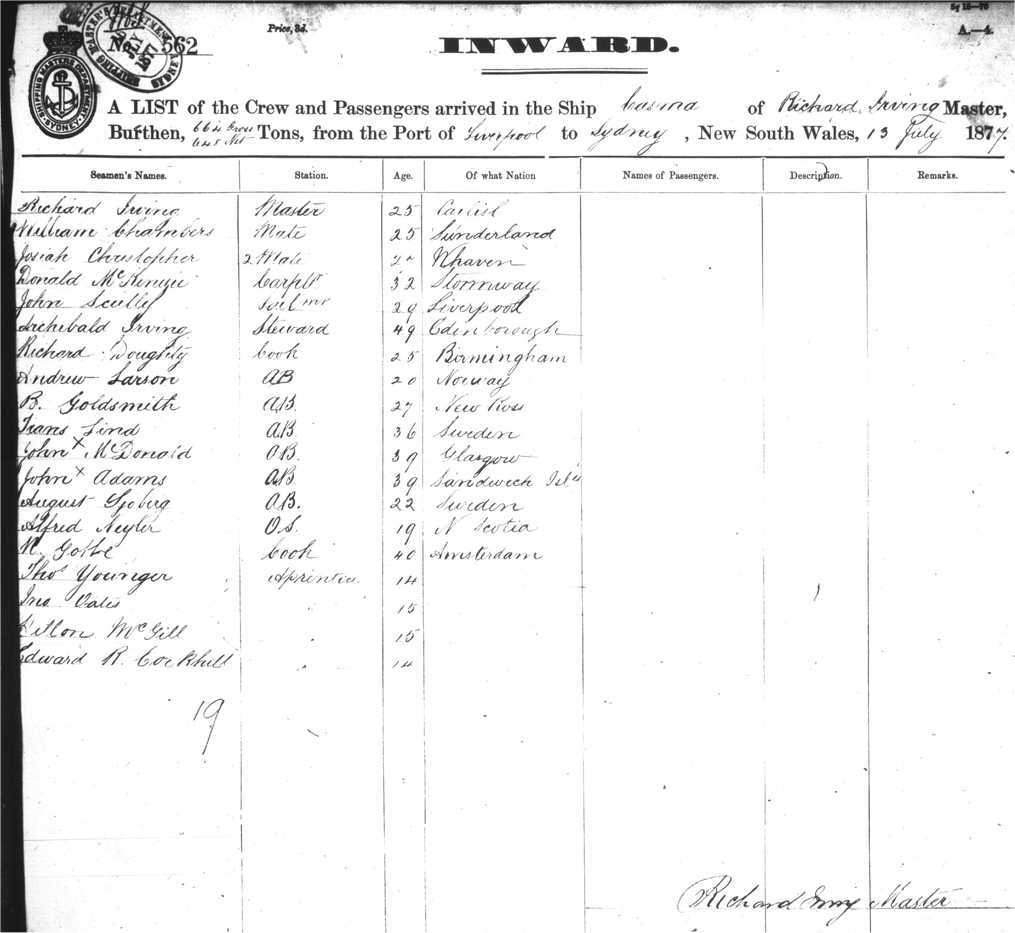 No. 562
Price, 3d.
5g 15—76
A.—4.
SHIPPING MASTER'S DEPARTMENT SYDNEY
INWARD.
A LIST of the Crew and Passengers arrived in the Ship Casma of Richard Irving Master,
Burthen, 664 Gross 645 Net Tons, from the Port of Liverpool to Sydney, New South Wales, 13 July 1877.
Seamen's Names. Station. Age. Of what Nation Names of Passengers. Description. Remarks.
Richard Irving Master 25 Carlisl
William Chambers Mate 25 Sunderland
Josiah Christopher 2 Mate Whaven
Donald McKenzie Carptr 32 Stornway
John Scully 29 Liverpool
Archibald Irving Steward 49 Edinborough
Richard Doughty Cook 25 Birmingham
Andrew Larson AB 20 Norway
B. Goldsmith A.B. 27 New Ross
Frans Lind A.B. 36 Sweden
John x McDonald A.B. 39 Glasgow
John x Adams A.B. 39 Sandwich Isl's
August Sjoberg A.B. 22 Sweden
Alfred Neyler O.S. 19 N Scotia
Cook 40 Amsterdam
Thos Younger Aprentice 14
Jno Oates 15
McGill 15
Edward R. Cockhill 14
19
Richard Irving Master